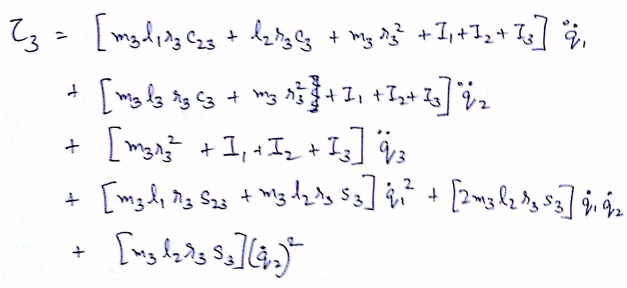 τ₃ = [m₃l₁r₃c₂₃ + l₂r₃c₃ + m₃r₃² + I₁+I₂+I₃] q̈₁
+ [m₃l₃r₃c₃ + m₃r₃² + I₁+I₂+I₃] q̈₂
+ [m₃r₃² + I₁+I₂+I₃] q̈₃
+ [m₃l₁r₃s₂₃ + m₃l₂r₃s₃] q̇₁² + [2m₃l₂r₃s₃] q̇₁q̇₂
+ [m₃l₂r₃s₃](q̇₂)²